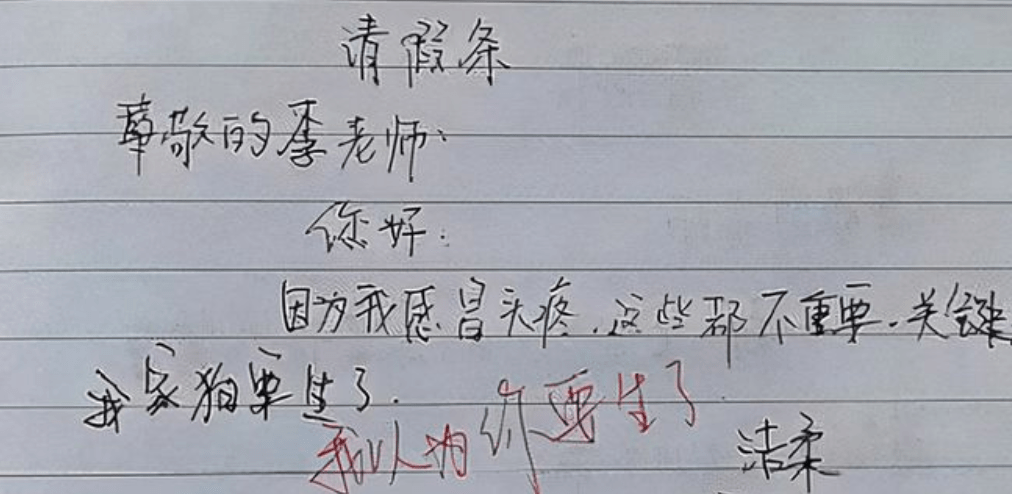 请假条
尊敬的李老师：
你好：
因为我感冒头疼.这些都不重要.关键
我家狗要生了.
我以为你要生了
洁柔